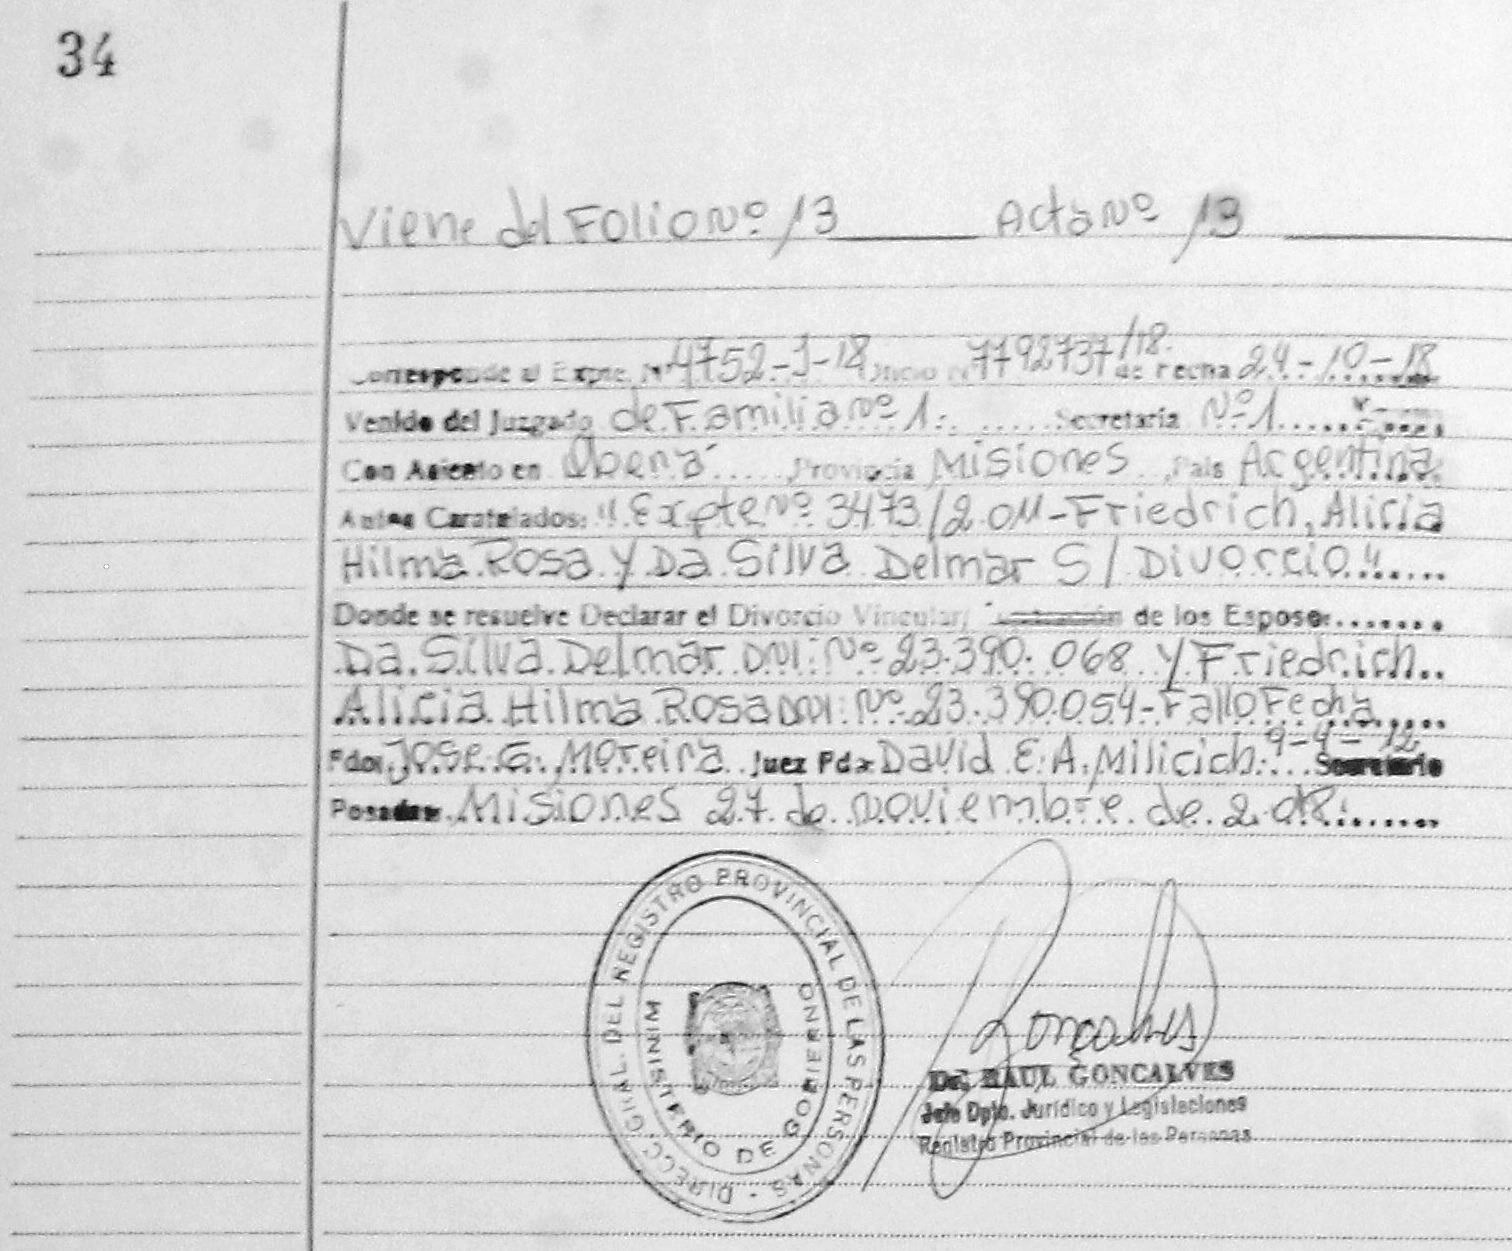 34
Viene del Folio Nº 13 Acta Nº 13
Corresponde al Expte. Nº 4752-J-18 Oficio Nº 7792737/18. de Fecha 24-10-18
Venido del Juzgado de Familia Nº 1. Secretaria Nº 1
Con Asiento en Oberá Provincia Misiones Pais Argentina
Autos Caratulados: "Expte Nº 3473/2.011-Friedrich, Alicia
Hilma Rosa y Da Silva Delmar S/Divorcio"
Donde se resuelve Declarar el Divorcio Vincular, de los Esposos
Da Silva Delmar DNI: Nº 23.390.068 y Friedrich
Alicia Hilma Rosa DNI: Nº 23.390.054-Fallo Fecha
9-4-12
Fdo: Jose G. Moreira Juez Fdo: David E. A. Milicich. Secretario
Posadas Misiones 27 de noviembre de 2.018.
DIRECC. GRAL. DEL REGISTRO PROVINCIAL DE LAS PERSONAS
MINISTERIO DE GOBIERNO
Goncalves
Dr. RAUL GONCALVES
Jefe Dpto. Jurídico y Legislaciones
Registro Provincial de las Personas